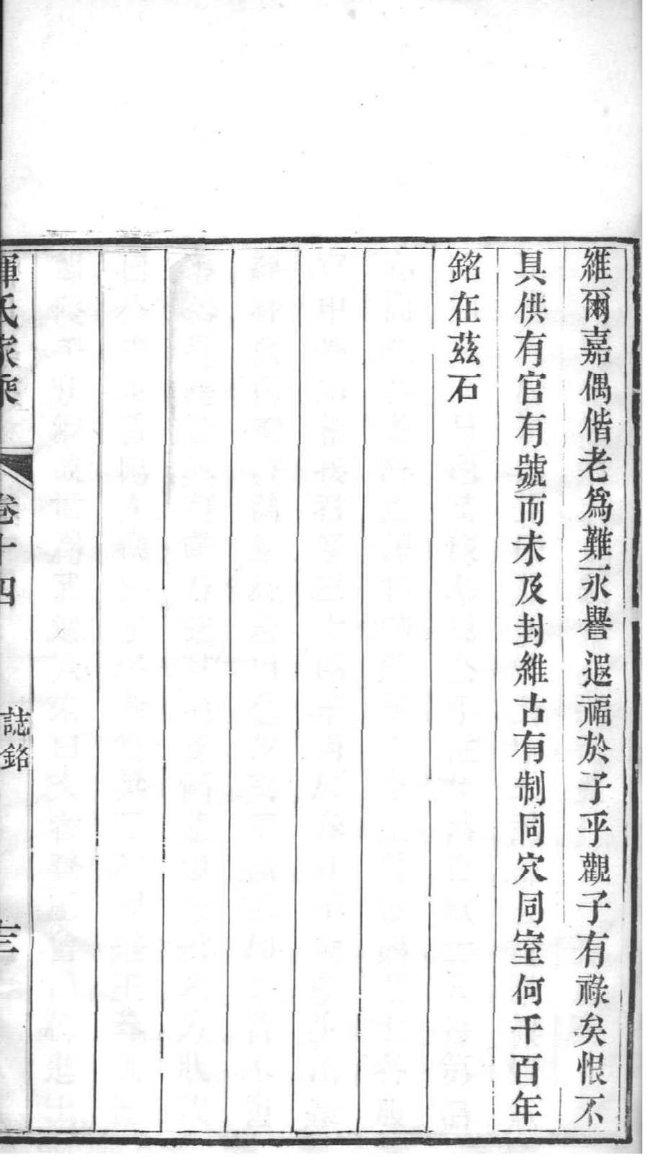 維爾嘉偶偕老爲難永譽遐福於子乎觀子有祿矣恨不
具供有官有號而未及封維古有制同穴同室何千百年
銘在茲石
惲氏家乘
卷十四
誌銘